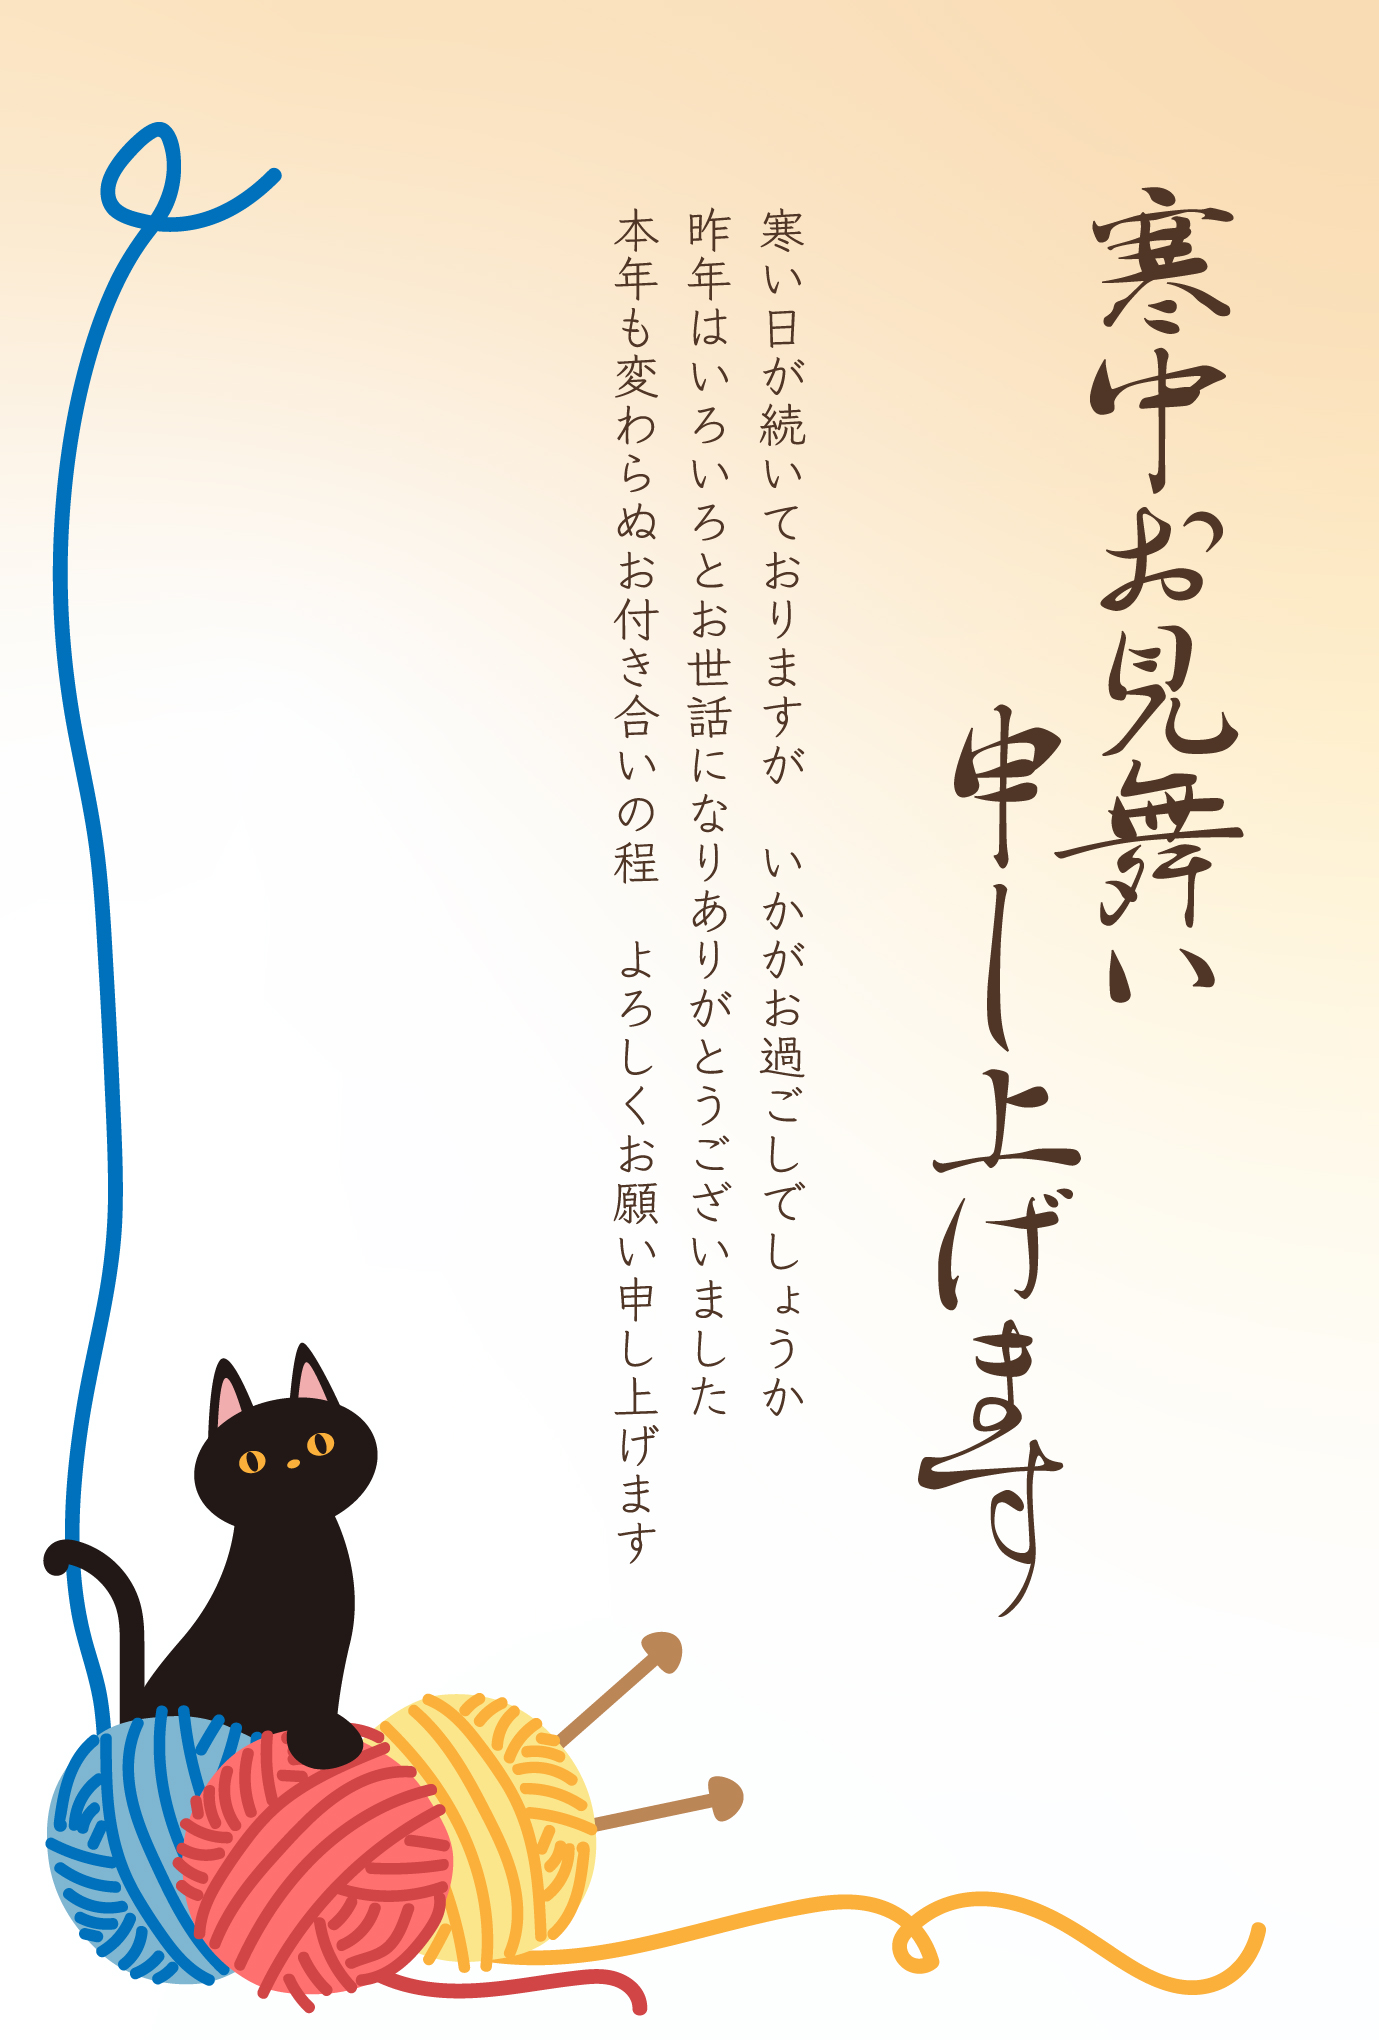 寒中お見舞い
申し上げます
寒い日が続いておりますが　いかがお過ごしでしょうか
昨年はいろいろとお世話になりありがとうございました
本年も変わらぬお付き合いの程　よろしくお願い申し上げます